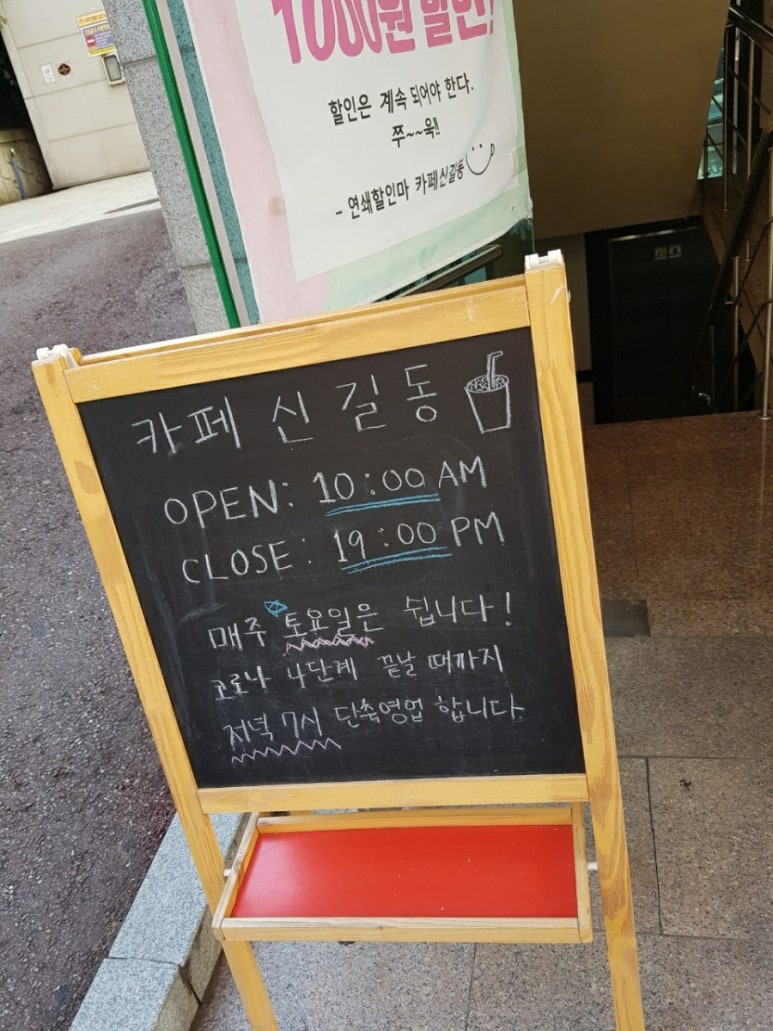 1000원 할인!
할인은 계속 되어야 한다.
쭈~~욱!!
- 연쇄할인마 카페신길동
카페 신길동
OPEN: 10:00 AM
CLOSE: 19:00 PM
매주 토요일은 쉽니다!
코로나 4단계 끝날 때까지
저녁 7시 단축영업 합니다